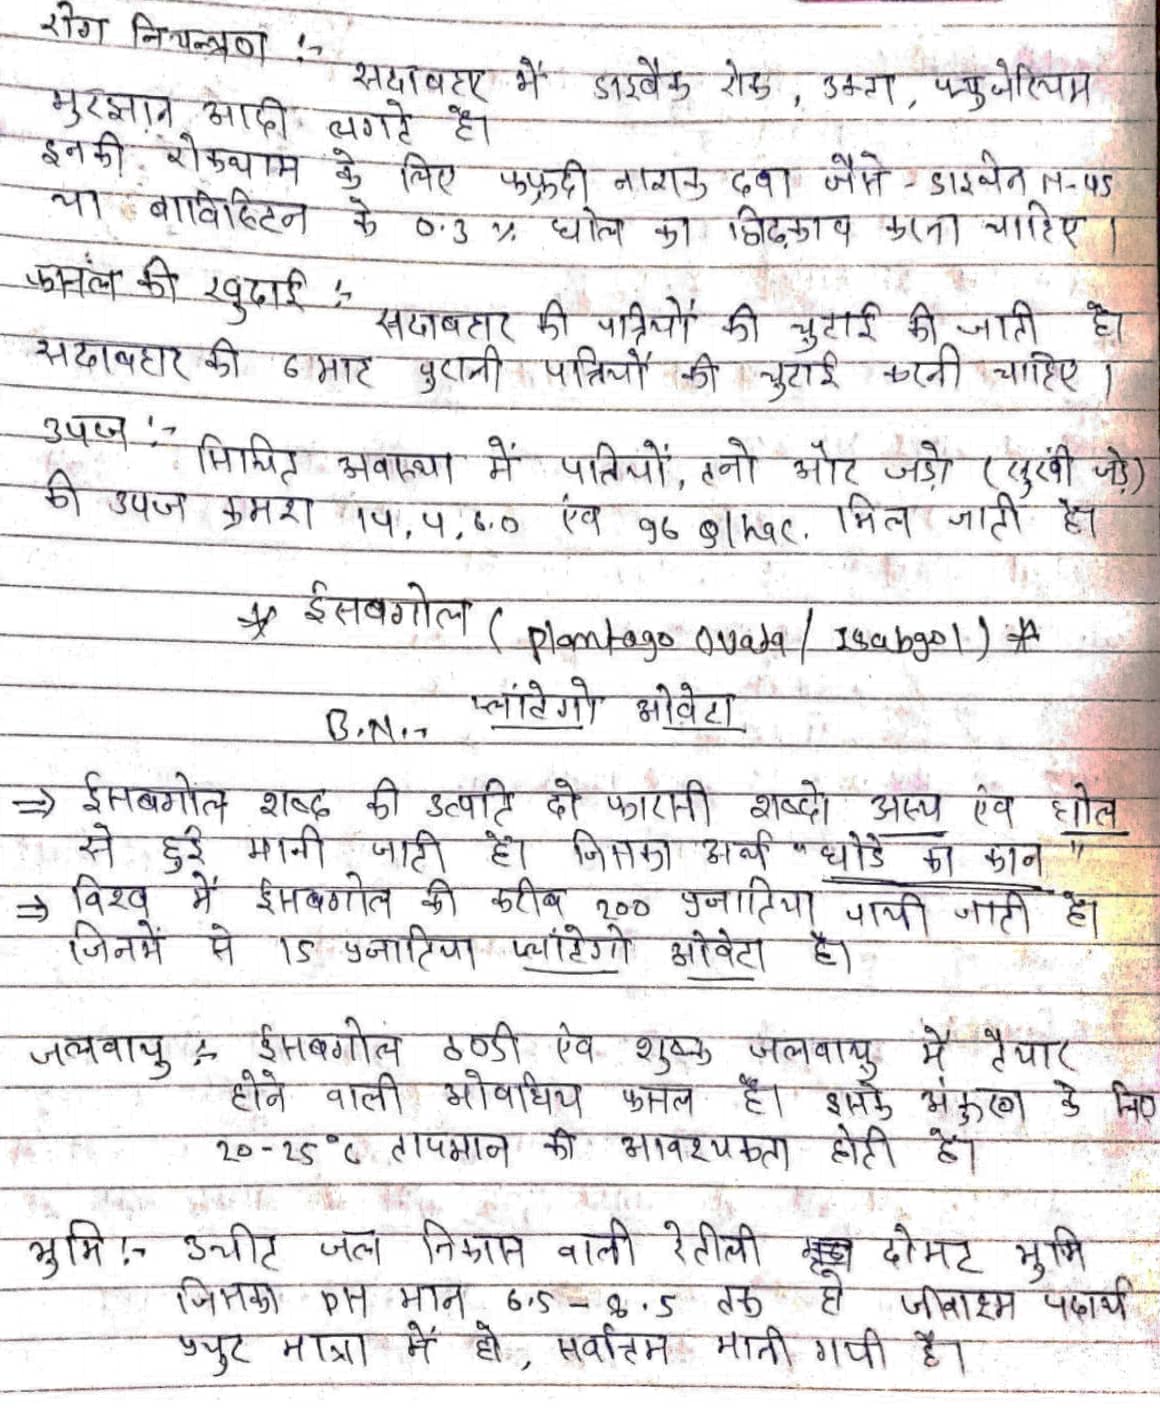 रोग नियन्त्रण :-
सदाबहार में डाइबैक रोक, उक्टा, फ्युजेरियम
मुरझान आदी लगते है।
इनकी रोकथाम के लिए फफुदी नाशक दवा जैसे - डाइथेन M-45
या बाविस्टिन के 0.3 % घोल का छिढ़काव करना चाहिए।
फसल की खुदाई :-
सदाबहार की पत्रियों की चुटाई की जाती है।
सदाबहार की 6 माह पुरानी पत्रियों की चुटाई करनी चाहिए।
उपज :-
सिंचित अवस्था में पतियों, तनो और जड़ो (सुखी जड़े)
की उपज क्रमश 14, 4, 6.0 एंव 96 Q/hac. मिल जाती है।
* ईसबगोल (Plantago Ovata / Isabgol) *
B.N.:- प्लांटेगो ओवेटा
⇒ ईसबगोल शब्द की उत्पति दो फारसी शब्दो अस्प एंव घोल
से हुई मानी जाती है। जिसका अर्थ "घोडे का कान"
⇒ विश्व में ईसबगोल की करीब 200 प्रजातिया पायी जाती है।
जिनमें से 15 प्रजातिया प्लांटेगो ओवेटा है।
जलवायु :- ईसबगोल ठण्डी एंव शुष्क जलवायु में तैयार
होने वाली ओषधिय फसल है। इसके अंकुरण के लिए
20-25°C तापमान की आवश्यकता होती है।
भुमि :- उचीत जल निकास वाली रेतीली दोमट भुमि
जिसका PH मान 6.5 - 8.5 तक हो जीवाश्म पदार्थ
प्रचुर मात्रा में हो, सर्वोतम मानी गयी है।